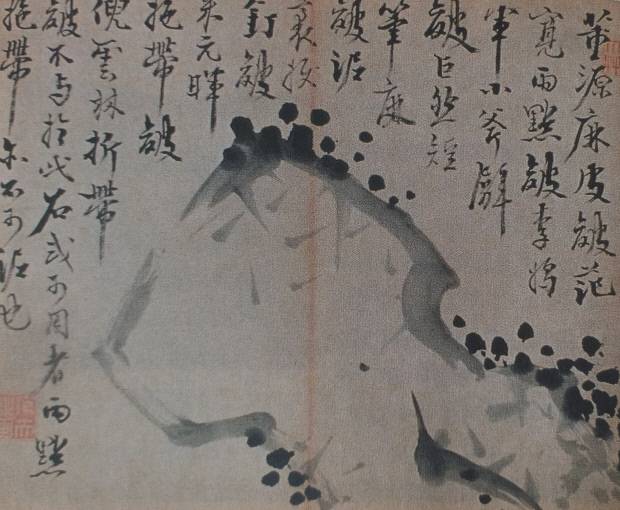 董源麻皮皴范
寬雨點皴李將
軍小斧劈
皴巨然短
筆麻
皴泥
裏拔
釘皴
米元暉
拖帶皴
倪雲林折帶
皴不与於此石或可用者雨點
拖帶尔不可泥也